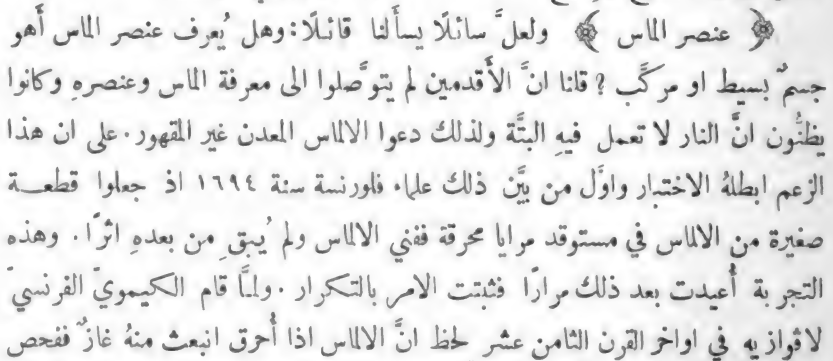 ﴿ عنصر الماس ﴾ ولعلَّ سائلًا يسألنا قائلًا: وهل يُعرف عنصر الماس أهو
جسمٌ بسيط او مركَّب ? قلنا انَّ الأَقدمين لم يتوصَّلوا الى معرفة الماس وعنصرهِ وكانوا
يظنُّون انَّ النار لا تعمل فيهِ البتَّة ولذلك دعوا الالماس المعدن غير المقهور. على ان هذا
الزعم ابطلهُ الاختبار واوَّل من بيَّن ذلك علماء فلورنسة سنة ١٦٩٤ اذ جعلوا قطعـــة
صغيرة من الالماس في مستوقد مرايا محرقة ففني الالماس ولم يُبقِ من بعدهِ اثرًا. وهذه
التجربة أُعيدت بعد ذلك مرارًا فثبتت الامر بالتكرار. ولمَّا قام الكيمويّ الفرنسيّ
لاڤوازيه في اواخر القرن الثامن عشر لحظ انَّ الالماس اذا أُحرق انبعث منهُ غازٌ ففحص